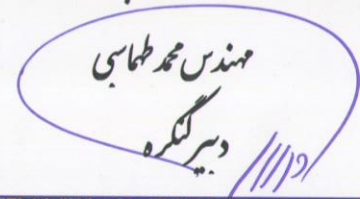 مهندس محمد طهماسبی
دبیر کنگره